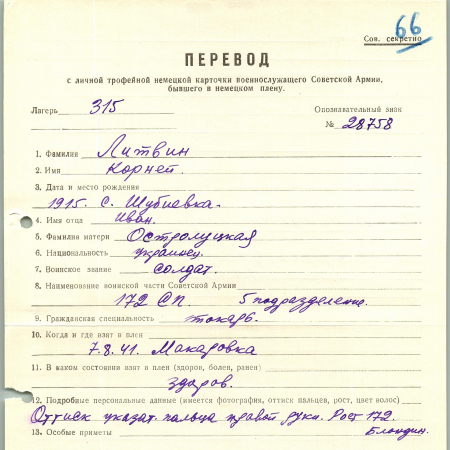 66
Сов. секретно
ПЕРЕВОД
с личной трофейной немецкой карточки военнослужащего Советской Армии,
бывшего в немецком плену.
Лагерь 315 Опознавательный знак
№ 28758
1. Фамилия Литвин
2. Имя Корней.
3. Дата и место рождения
1915. с. Шубиевка.
4. Имя отца Иван.
5. Фамилия матери Остролуцкая
6. Национальность украинец.
7. Воинское звание солдат.
8. Наименование воинской части Советской Армии
172 СП. 5 подразделение.
9. Гражданская специальность токарь.
10. Когда и где взят в плен
7.8.41. Макаровка
11. В каком состоянии взят в плен (здоров, болен, ранен)
здоров.
12. Подробные персональные данные (имеется фотография, оттиск пальцев, рост, цвет волос)
Оттиск указат. пальца правой руки. Рост 172.
13. Особые приметы Блондин.